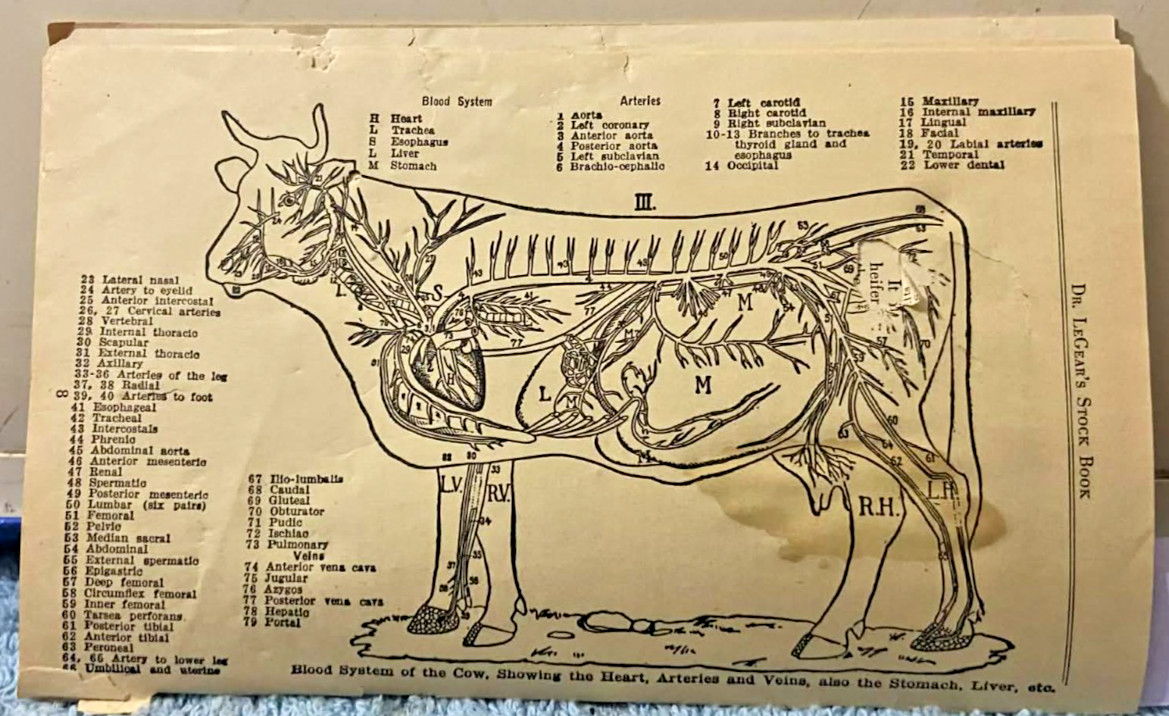 Blood System
H Heart
L Trachea
S Esophagus
L Liver
M Stomach
Arteries
1 Aorta
2 Left coronary
3 Anterior aorta
4 Posterior aorta
5 Left subclavian
6 Brachio-cephalic
7 Left carotid
8 Right carotid
9 Right subclavian
10-13 Branches to trachea
thyroid gland and
esophagus
14 Occipital
15 Maxillary
16 Internal maxillary
17 Lingual
18 Facial
19, 20 Labial arteries
21 Temporal
22 Lower dental
III.
23 Lateral nasal
24 Artery to eyelid
25 Anterior intercostal
26, 27 Cervical arteries
28 Vertebral
29 Internal thoracic
30 Scapular
31 External thoracic
32 Axillary
33-36 Arteries of the leg
37, 38 Radial
8 39, 40 Arteries to foot
41 Esophageal
42 Tracheal
43 Intercostals
44 Phrenic
45 Abdominal aorta
46 Anterior mesenteric
47 Renal
48 Spermatic
49 Posterior mesenteric
50 Lumbar (six pairs)
51 Femoral
52 Pelvic
53 Median sacral
54 Abdominal
55 External spermatic
56 Epigastric
57 Deep femoral
58 Circumflex femoral
59 Inner femoral
60 Tarsea perforans.
61 Posterior tibial
62 Anterior tibial
63 Peroneal
64, 65 Artery to lower leg
Umbilical and uterine
67 Ilio-lumbalis
68 Caudal
69 Gluteal
70 Obturator
71 Pudic
72 Ischiac
73 Pulmonary
Veins
74 Anterior vena cava
75 Jugular
76 Azygos
77 Posterior vena cava
78 Hepatic
79 Portal
S
H
L
M
M
M
L.V.
R.V.
R.H.
L.H.
It
heifer
DR. LEGEAR'S STOCK BOOK
Blood System of the Cow, Showing the Heart, Arteries and Veins, also the Stomach, Liver, etc.